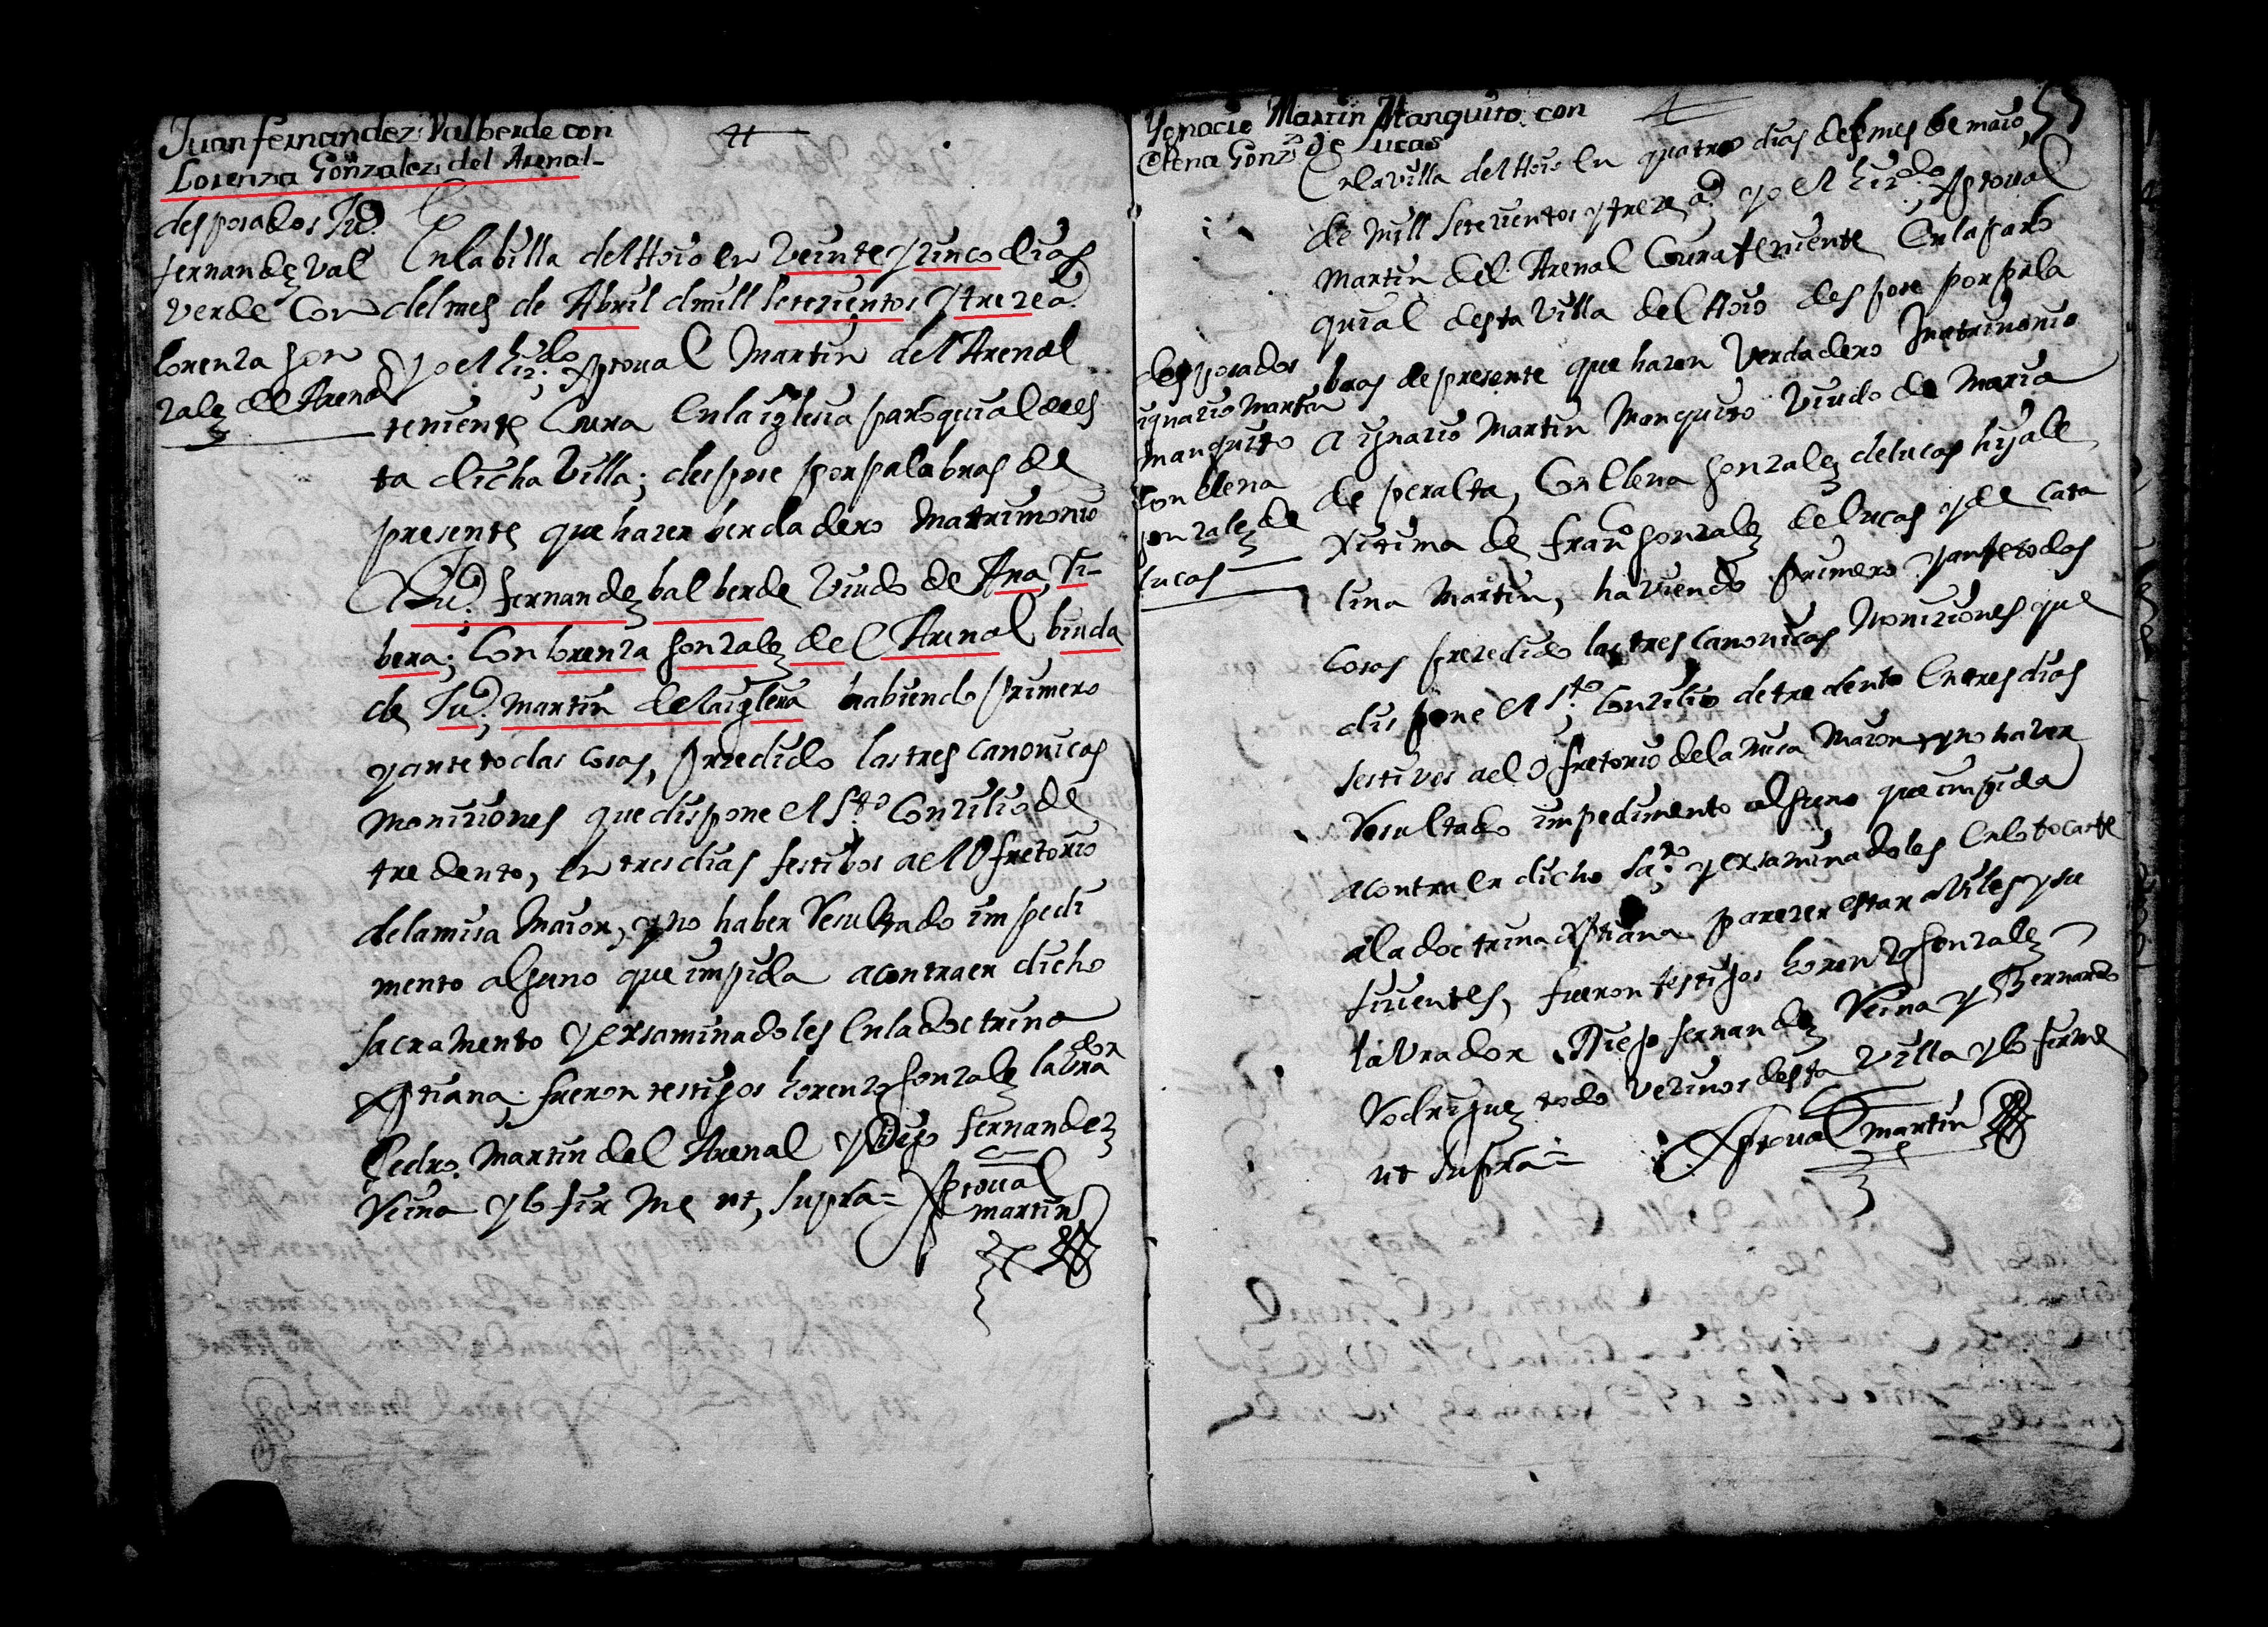 Juan fernandez Valberde con
Lorenza Gonzalez del Arenal
desposados Ju.º
fernandez Val
verde Con
lorenza gon
zalez del Arenal
En la billa del Hoio en Veinte y zinco dias
del mes de Abril d mill setezientos y treze a.s
yo el liz.do Xptoual Martin del Arenal
teniente Cura en la iglesia paroquial de es
ta dicha Villa; despose por palabras de
presente que hazen berdadero Matrimonio
a Ju.º fernandez balberde Viudo de Ana, Ri-
bera; Con lorenza gonzalez del Arenal biuda
de Ju.º Martin de la iglesia habiendo primero
y ante todas cosas, prezedido las tres canonicas
moniziones que dispone el S.to Conzilio de
tredento, en tres dias festibos ael Ofretorio
de la misa Maior, y no haber Resultado impedi
mento alguno que impida a contraer dicho
sacramento y exsaminadoles en la doctrina
Xptiana fueron testigos lorenzo gonzalez labra
dor
Pedro Martin del Arenal y Diego fernandez
Reina y lo firme ut, supra =
Xptoual
martin
Ygnacio Martin Manquito con
Elena Gonz.z de Lucas
53
En la villa del Hoio en quatro dias del mes de maio
de mill setezientos y treze a.s yo el liz.do Xptoual
Martin del Arenal Cura teniente En la paro
quial desta Villa del Hoio despose por pala
bras de presente que hazen Verdadero Matrimonio
a ignazio Martin Manquito Viudo de Maria
de peralta, Con Elena gonzalez de lucas hija le
xitima de fran.co gonzalez de lucas y de Cata
lina Martin, haviendo primero y ante todas
cosas prezedido las tres canonicas Moniziones que
dispone el S.to Conzilio de tredento En tres dias
festivos ael Ofretorio de la misa Maior, y no haver
Resultado impedimento alguno que impida
a contraer dicho Sa.to y exsaminadoles En lo tocante
a la doctrina Xptiana parezer estar aviles y su
fizientes, fueron testigos lorenzo gonzalez
lavrador Diego fernandez Reina y Bernardo
Rodriguez todo vezinos desta villa y lo firme
ut supra =
Xptoual martin
desposados
ignazio Martin
manquito
Con elena
gonzalez de
lucas